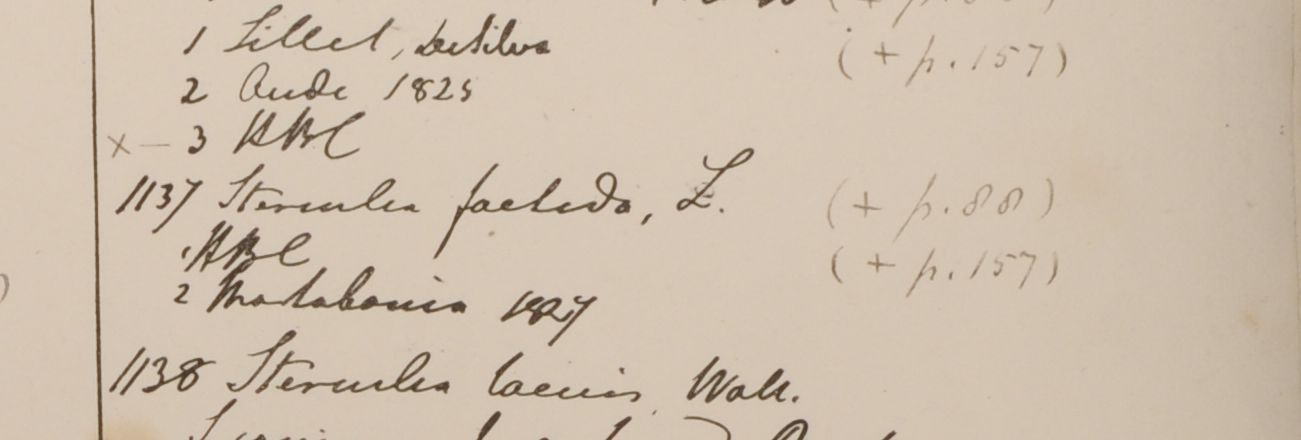 1 Sillet, DeSilva (+ p. 157)
2 Oude 1825
x — 3 HBC
1137 Sterculia foetida, L. (+ p. 88)
1 HBC (+ p. 157)
2 Martabania 1827
1138 Sterculia laevis Wall.